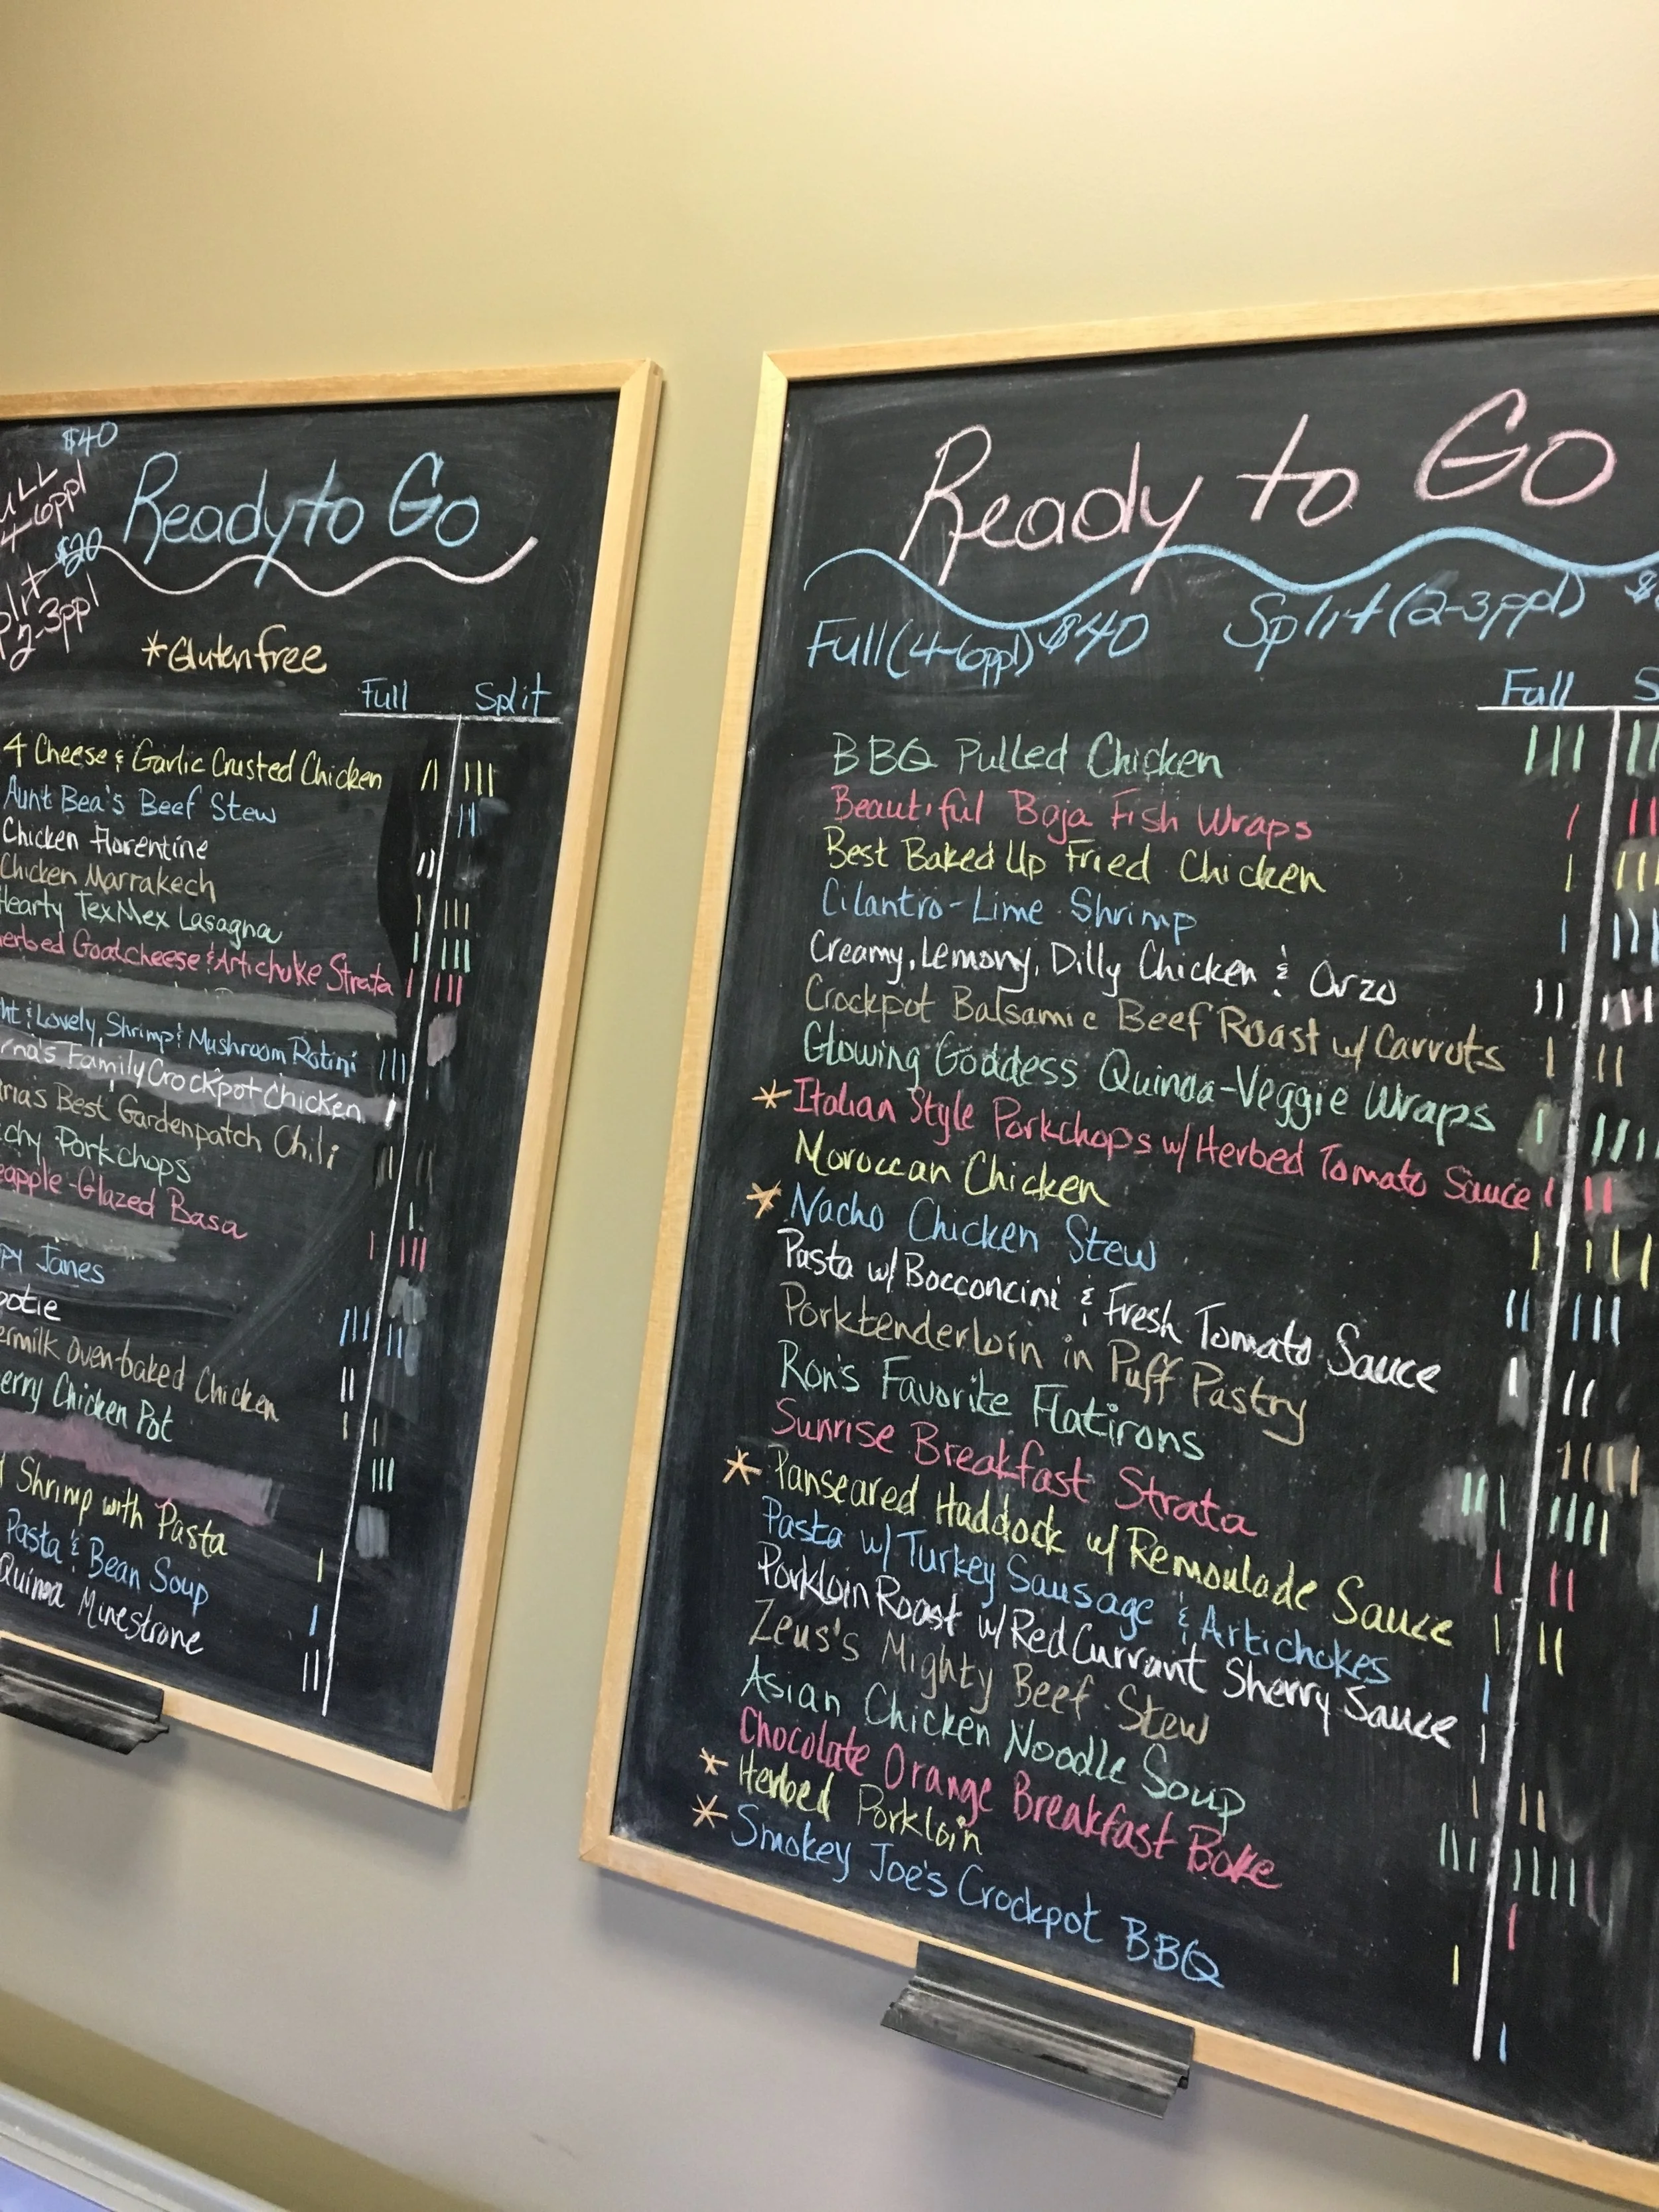 $40
4-6ppl
$20
2-3ppl
Ready to Go
*Gluten free
Full Split
4 Cheese & Garlic Crusted Chicken
Aunt Bea's Beef Stew
Chicken Florentine
Chicken Marrakech
Hearty TexMex Lasagna
Goatcheese & Artichoke Strata
& Lovely, Shrimp & Mushroom Rotini
Family Crockpot Chicken
Best Gardenpatch Chili
Porkchops
-Glazed Basa
Janes
oven-baked Chicken
Chicken Pot
Shrimp with Pasta
Pasta & Bean Soup
Quinoa Minestrone
Ready to Go
Full (4-6ppl) $40 Split (2-3ppl)
Full
BBQ Pulled Chicken
Beautiful Baja Fish Wraps
Best Baked Up Fried Chicken
Cilantro-Lime Shrimp
Creamy, Lemony, Dilly Chicken & Orzo
Crockpot Balsamic Beef Roast w/ Carrots
Glowing Goddess Quinoa-Veggie Wraps
*Italian Style Porkchops w/ Herbed Tomato Sauce
Moroccan Chicken
*Nacho Chicken Stew
Pasta w/ Bocconcini & Fresh Tomato Sauce
Porktenderloin in Puff Pastry
Ron's Favorite Flatirons
Sunrise Breakfast Strata
*Panseared Haddock w/ Remoulade Sauce
Pasta w/ Turkey Sausage & Artichokes
Porkloin Roast w/ Red Currant Sherry Sauce
Zeus's Mighty Beef Stew
Asian Chicken Noodle Soup
Chocolate Orange Breakfast Bake
*Herbed Porkloin
*Smokey Joe's Crockpot BBQ